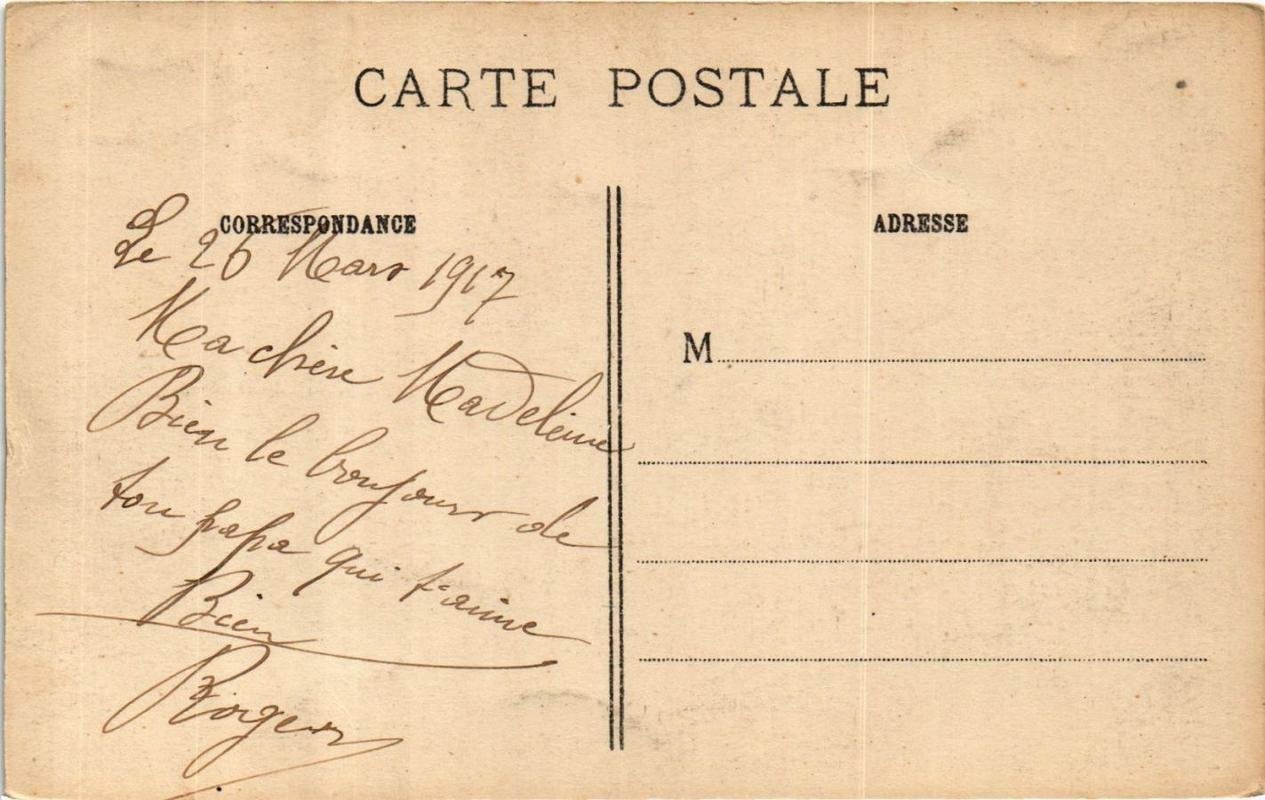 CARTE POSTALE
CORRESPONDANCE
Le 26 Mars 1917
Ma chère Madeleine
Bien le bonjour de
ton papa qui t'aime
Bien
Roger
ADRESSE
M